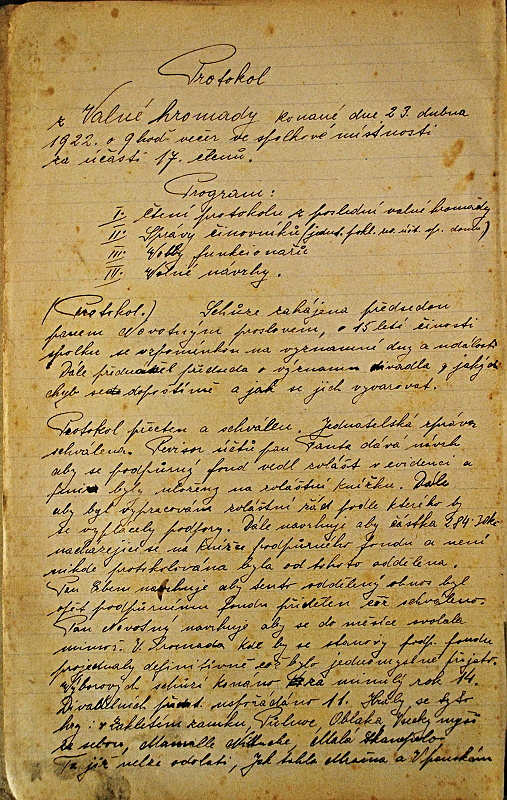 Protokol
z Valné hromady konané dne 23. dubna
1922. o 9 hod. večer ve spolkové místnosti
za účasti 17. členů.
Program:
I. Čtení protokolu z poslední valné hromady
II. Správy činovníků (jednat. pokl. rev. účt. op. domu)
III. Volby funkcionářů
IV. Volné návrhy.
(Protokol.) Schůze zahájena předsedou
panem Novotným proslovem, o 15 leté činosti
spolku se vzpomínkou na významné dny a události
Dále přednášel předseda o významu divadla
chyb se dopoštíme a jak se jich vyvarovat.
Protokol přečten a schválen. Jednatelská zpráva
schválena. Revisor účtů pan Fanta dává návrh
aby se podpůrný fond vedl zvlášť v evidenci a
byly uloženy na zvláštní knížku. Dále
aby byl vypracován zvláštní řád podle kterého by
se vyplácely podpory. Dále navrhuje aby částka 284.
nacházející se na knížce podpůrného fondu a není
nikde protokolována byla od tohoto oddělena.
Pan Eben navrhuje aby tento oddělený obnos byl
opět podpůrnímu fondu přidělen což schváleno.
Pan Novotný navrhuje aby se do měsíce svolala
mimoř. V. hromada kde by se stanovy podp. fondu
projednaly definitivně což bylo jednomyslně přijato.
Výborových schůzí konáno za minulý rok 14.
Divadelních předst. uspořádáno 11. Hrály se tyto
hry: v Zakletém zámku, Oblaka, Vocky myší
za sebou, Mamselle Nitouche, Malá
To již nelze odolati, Jak táhla a